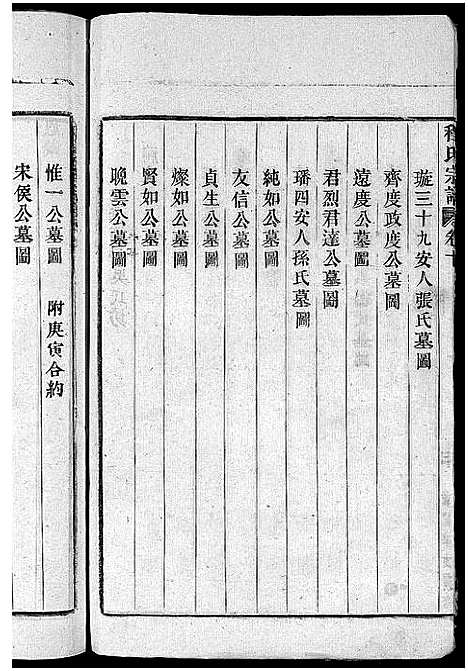 程氏宗譜 卷十
璇三十九安人張氏墓圖
齊度政度公墓圖
遠度公墓圖
君烈君達公墓圖
璠四安人孫氏墓圖
純如公墓圖
友信公墓圖
貞生公墓圖
燦如公墓圖
賢如公墓圖
晩雲公墓圖
惟一公墓圖 附庚寅合約
宋侯公墓圖